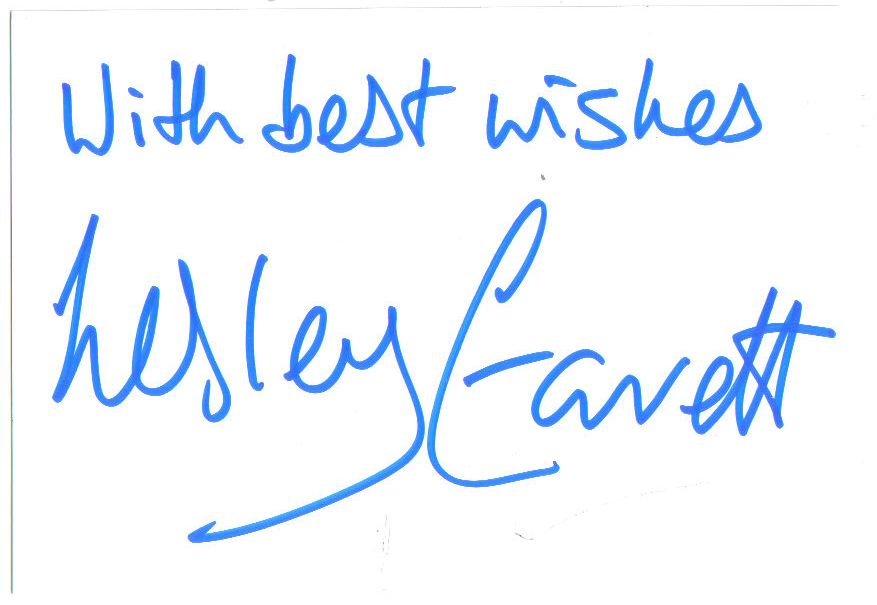 With best wishes
Lesley Garrett